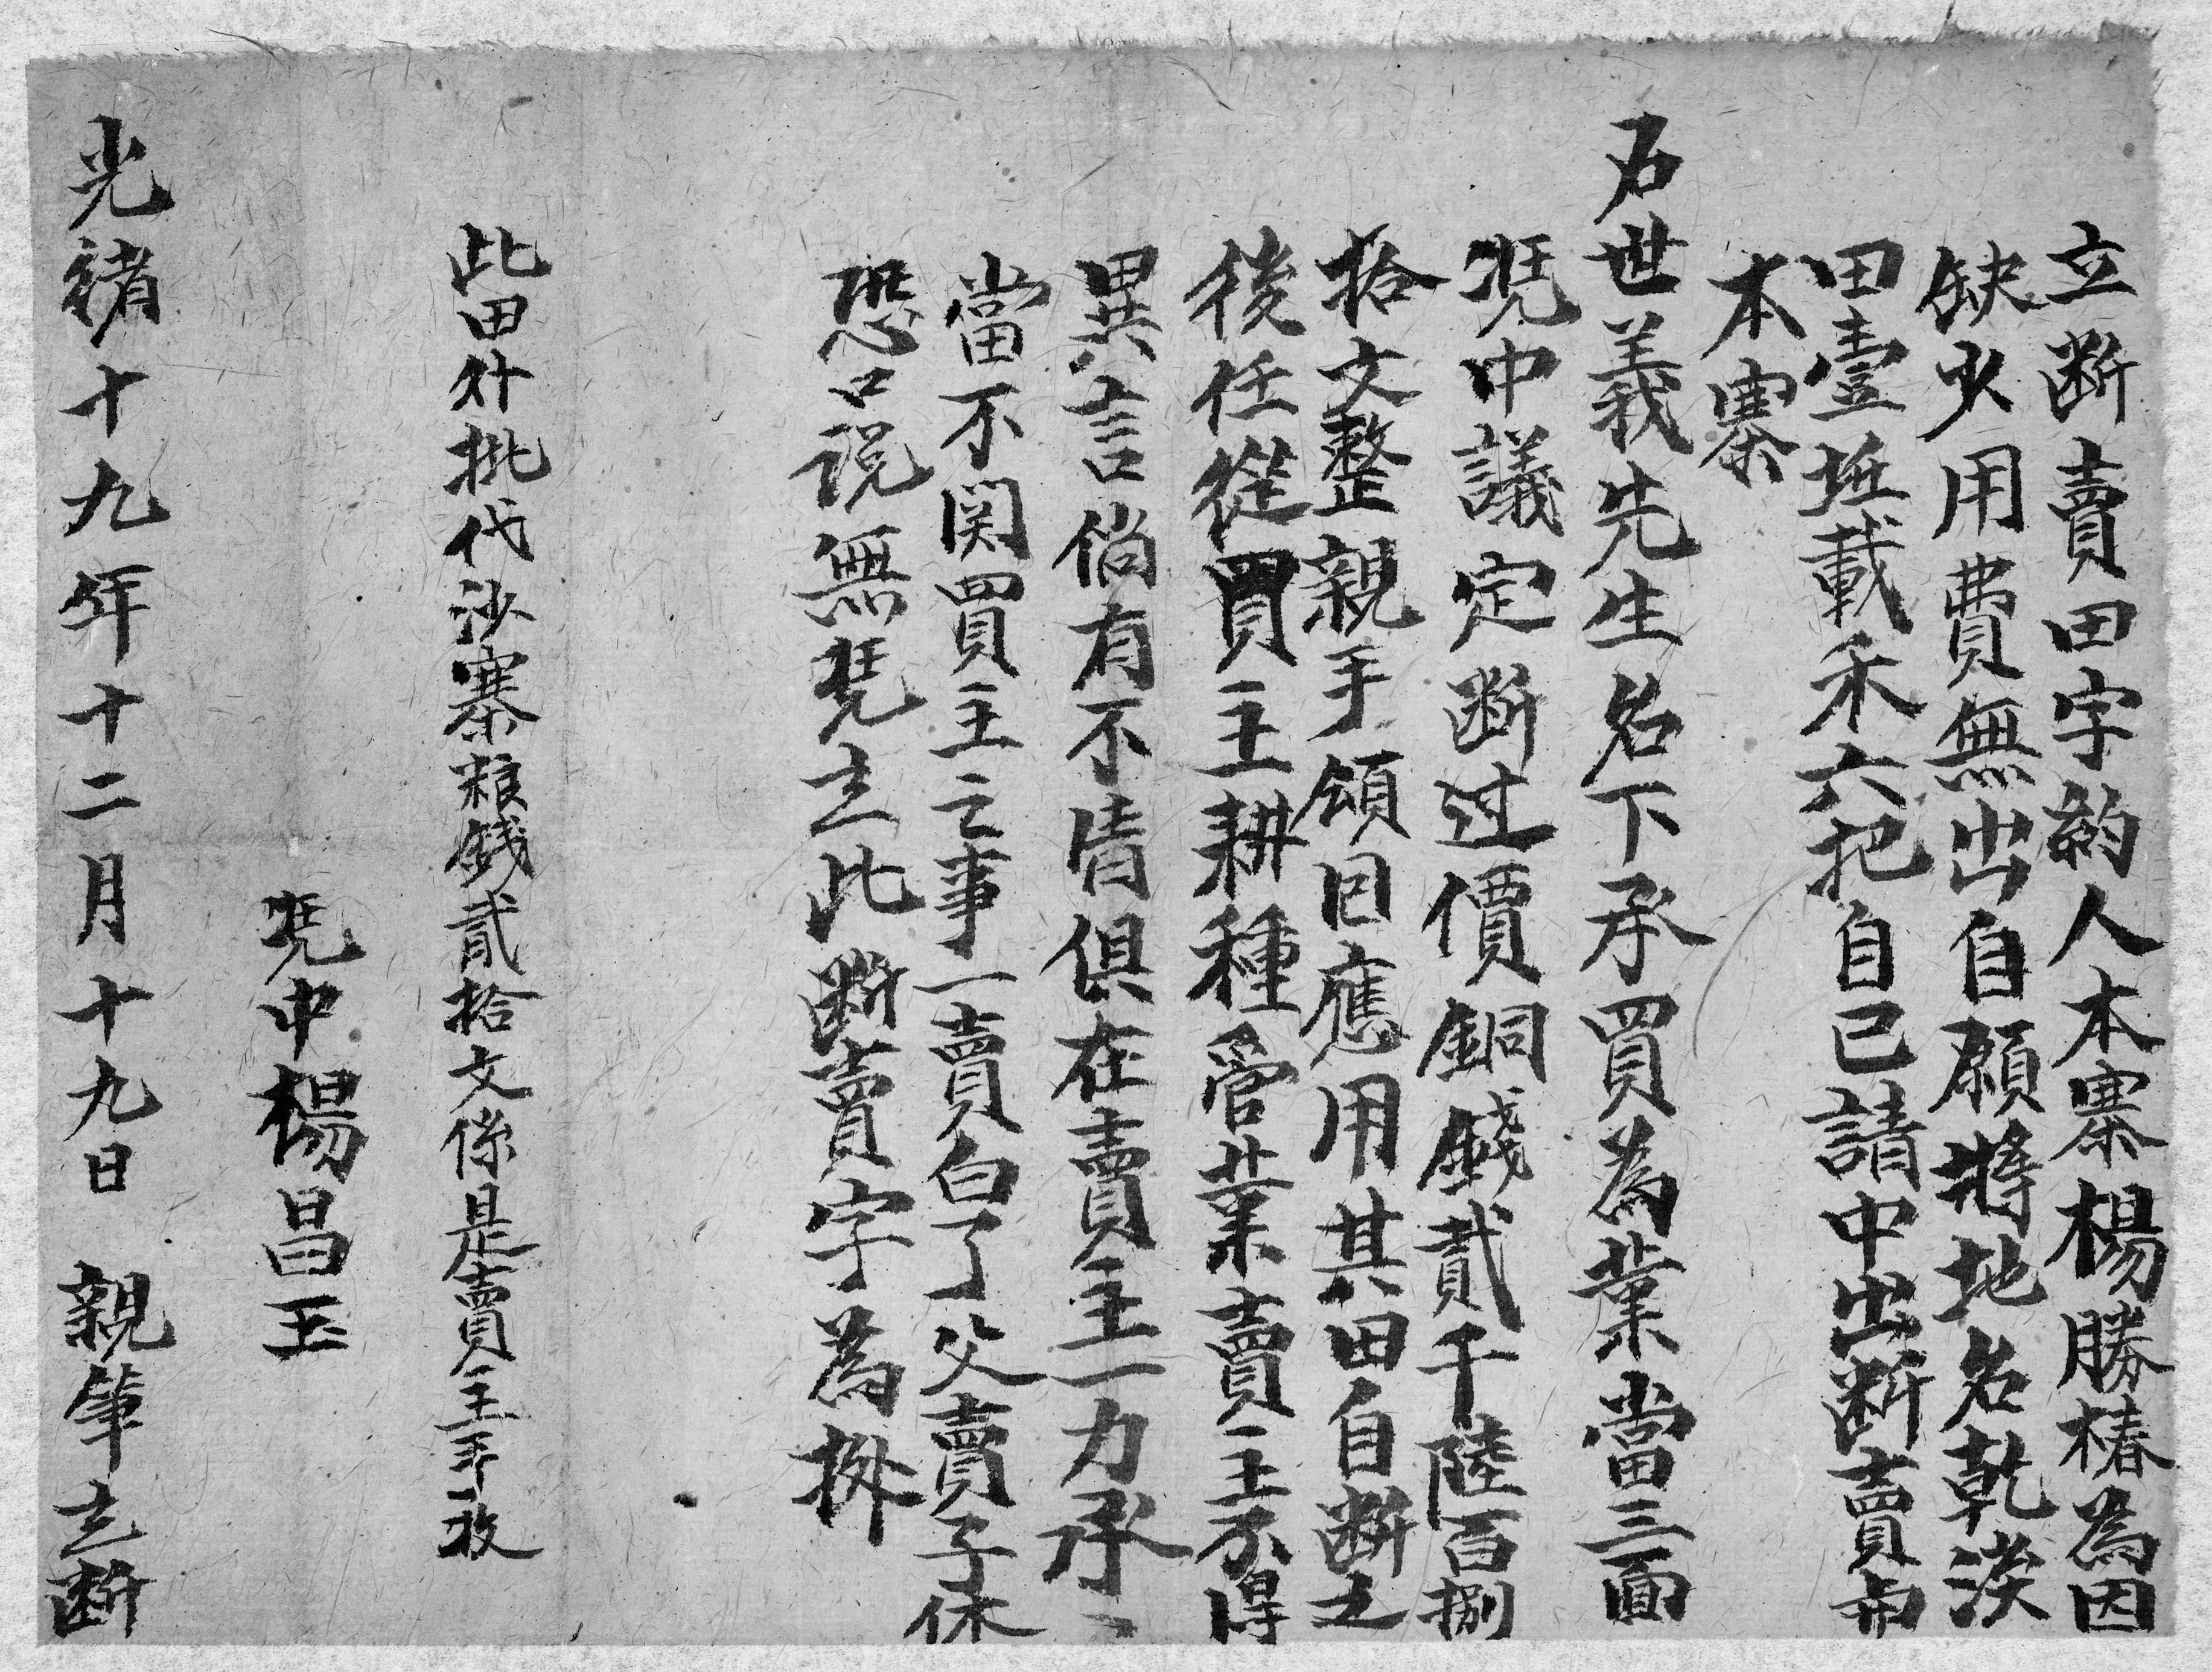 立断賣田字約人本寨楊勝椿為因
缺少用費無出自願將地名乾淡
田壹坵載禾六把自己請中出断賣与
本寨
石世義先生名下承買為業當三面
凴中議定断过價銅錢貳千陸百捌
拾文整親手領回應用其田自断之
後任從買主耕種管業賣主不得
異言倘有不清俱在賣主一力承
當不関買主之事一賣白了父賣子休
恐口说無凴立此断賣字為拠
此田外批代沙寨粮錢貳拾文係是賣主手收
凴中楊昌玉
光緒十九年十二月十九日 親筆立断